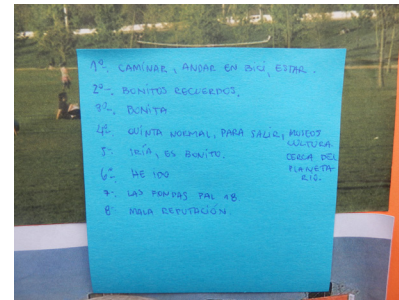 1º- CAMINAR, ANDAR EN BICI, ESTAR.
2º- BONITOS RECUERDOS.
3º- BONITA
4º- QUINTA NORMAL, PARA SALIR, MUSEOS
CULTURA.
CERCA DEL
PLANETA-
RIO.
5- IRÍA, ES BONITO.
6º- HE IDO
7- LAS FONDAS PAL 18.
8- MALA REPUTACIÓN.